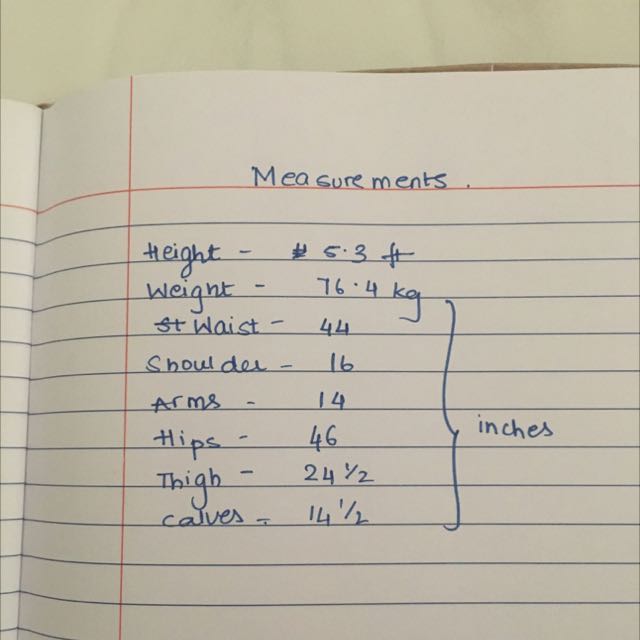 Measurements.
Height - 5.3 ft
Weight - 76.4 kg
Waist - 44
Shoulder - 16
Arms - 14
Hips - 46
inches
Thigh - 24 1/2
Calves - 14 1/2